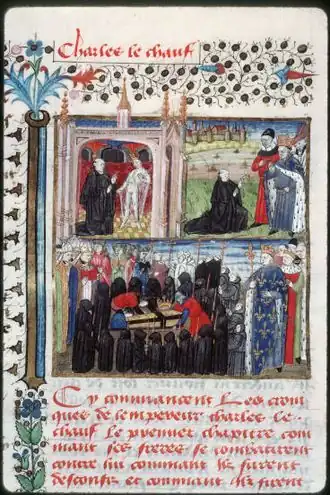 Charles le chauf
Cy commancent les croni
ques de lempereur charles le
chauf Le premier chapitre com
mant ses freres se combatirent
contre lui commant ilz furent
desconfiz et commant ilz firent